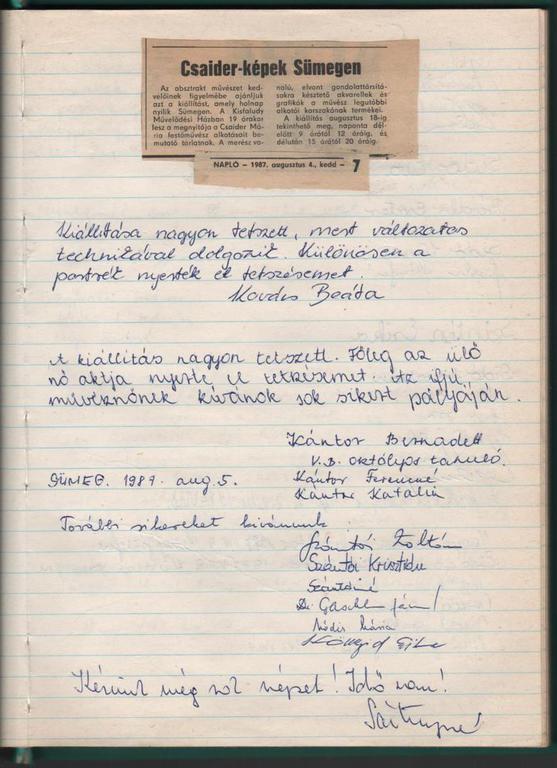 Csaider-képek Sümegen
Az absztrakt művészet ked-
velőinek figyelmébe ajánljuk
azt a kiállítást, amely holnap
nyílik Sümegen. A Kisfaludy
Művelődési Házban 19 órakor
lesz a megnyitója a Csaider Má-
ria festőművész alkotásait be-
mutató tárlatnak. A merész vo-
nalú, elvont gondolattársítá-
sokra késztető akvarellek és
grafikák a művész legutóbbi
alkotói korszakának termékei.
A kiállítás augusztus 18-ig
tekinthető meg, naponta dél-
előtt 9 órától 12 óráig, és
délután 15 órától 20 óráig.
NAPLÓ – 1987. augusztus 4., kedd – 7
Kiállítása nagyon tetszett, mert változatos
technikával dolgozik. Különösen a
portrék nyerték el tetszésemet.
Kovács Beáta
A kiállítás nagyon tetszett. Főleg az ülő
nő aktja nyerte el tetszésemet. Az ifjú
művésznőnek kívánok sok sikert pályáján.
Kántor Bernadett
V.B. oktölyps tanuló.
SÜMEG. 1987. aug. 5.
Kántor Ferencné
Kántor Katalin
További sikereket kívánunk
Szántói Zoltán
Szántói Krisztián
Szántóiné
Dr. Gaschler János
Mária
Kérünk még sok képet! Idő van!